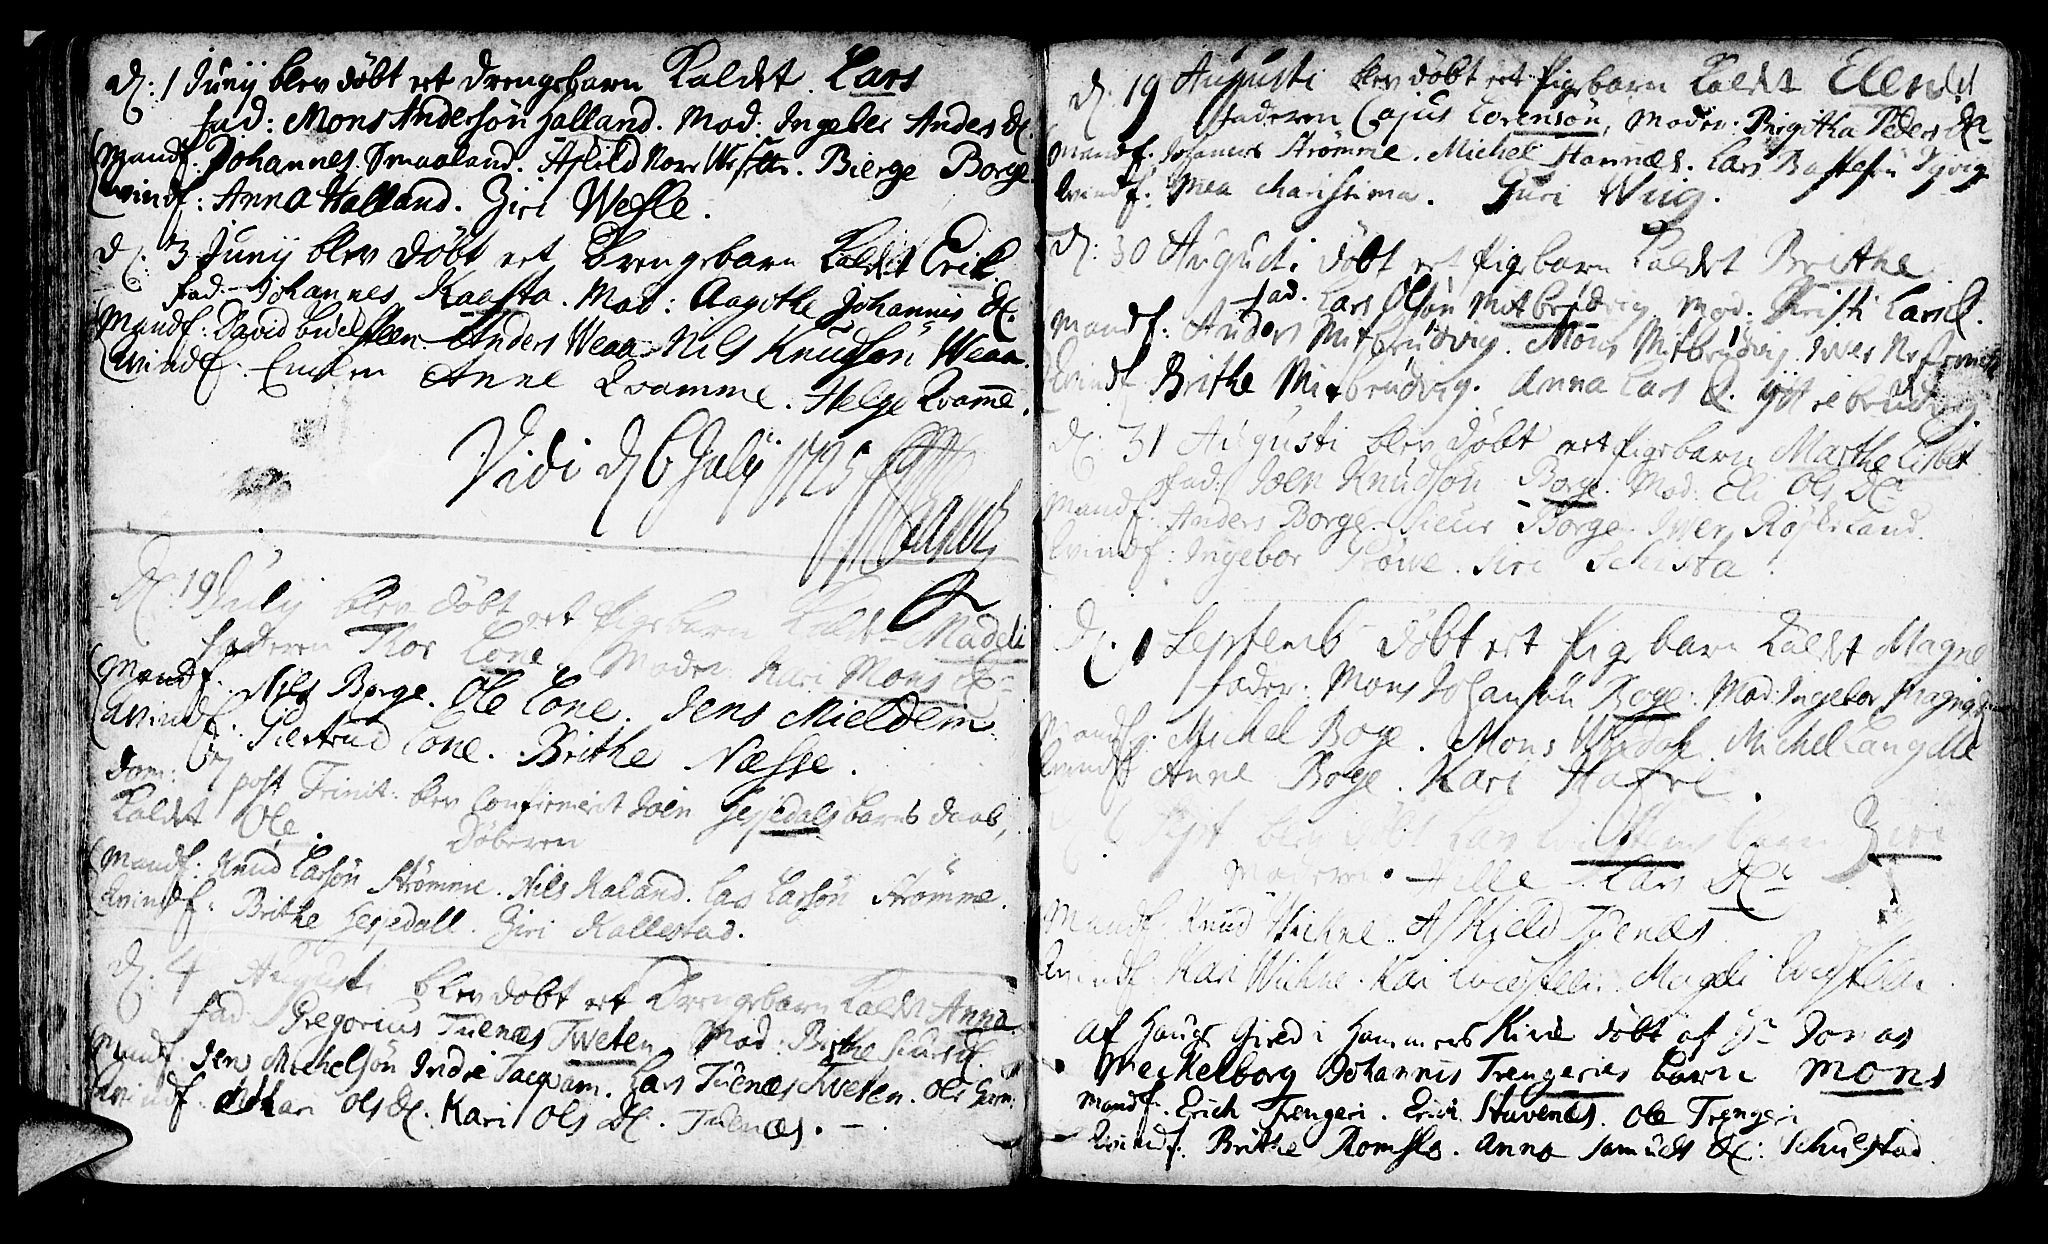 D: 1 Junij blev døbt ret drengebarn Kaldet Lars
fad: Mons Andersøn Halland. Mod. Ingeber Anders D.
Mandf: Johannes Smaaland. Askild Bierge Borge
Kvindf: Anna Halland. Giri Wefle.
D: 3 Junij blev døbt et Drengebarn Kaldet Erik
fad. Johannes Kaasta. Mod: Aagithe Johannis D.
Mandf: David Anders Weaa. Nils Knudsøn Weaa
Kvindf. Anne Kvamme. Helge Kvamme.
Vidi D 6 July 1725
D: 19 July blev døbt et Pigebarn Kaldet Madeli
faderen Tor Lone Moder Kari Mons D.
Mandf. Nils Borge. Ole Lone. Jens Mieldem
Kvindf. Giertrud Lone. Brithe Næsse.
Dom: 7 post Trinit. blev Confirmert Joen Hesjedals barns daab,
Kaldet Ole. Døberen
Mandf: Knud Larsøn Strømme. Nils Kaland. Lars Larsøn Strømme.
Kvindf: Brithe Hesjedall. Giri Kallestad.
D. 4 Augusti blev døbt et Drengebarn Kaldet Anna
fad. Gregorius Tuenæs Tweten Mod: Birthe
Mandf. Jens Michelsøn Indre Tacqvam. Lars Tuenæs Tweten. Ole
Kvindf. Kari Ols D. Kari Ols D. Tuenæs.
D. 19 Augusti blev døbt et Pigebarn Kaldet Ellen
faderen Cajus Lorensøn, Moder: Birgitha Peders D
Mandf. Johannes Strømme. Michel Hannæs. Lars
Kvindf: Mea Charissima. Guri Wiig.
D: 30 Augusti døbt et Pigebarn Kaldet Brithe
fad. Lars Olsøn Mitbrudvig Mod. Kristi Lars D.
Mandf: Anders Mitbrudvig. Mons Mitbrudvig. Iver
Kvindf Brithe Mitbrudvig. Anna Lars D. ijtrebrudvig
D: 31 Augusti blev døbt et Pigebarn Marthe Lisbet
fad: Joen Knudsøn Borge. Mod: Eli Ols D
Mandf. Anders Borge. Siur Borge. Iver Røseland.
Kvindf: Ingebor Siri
D. 1 Septemb døbt et Pigebarn Kaldet Magne
fader: Mons Johansøn Boge. Mod: Ingebor
Mandf. Michel Boge. Mons Michel
Kvindf Anne Boge. Kari Hafre.
D 6 Sept blev døbt barn Giri
Moderen. Hille Lars D
Mandf. Knud Wichne. Askield Tuenæs
Kvindf Kari Wichne. Kari Magdli
af Haugs Gield i Hammers Kirke døbt af Hr Jonas
Meckelborg Johannis Trengeries barn Mons
Mandf. Erich Trengeri. Erich Stuvenes. Ole Trengeri
Kvindf. Brithe Romslo. Anna Samuels D: Schulstad